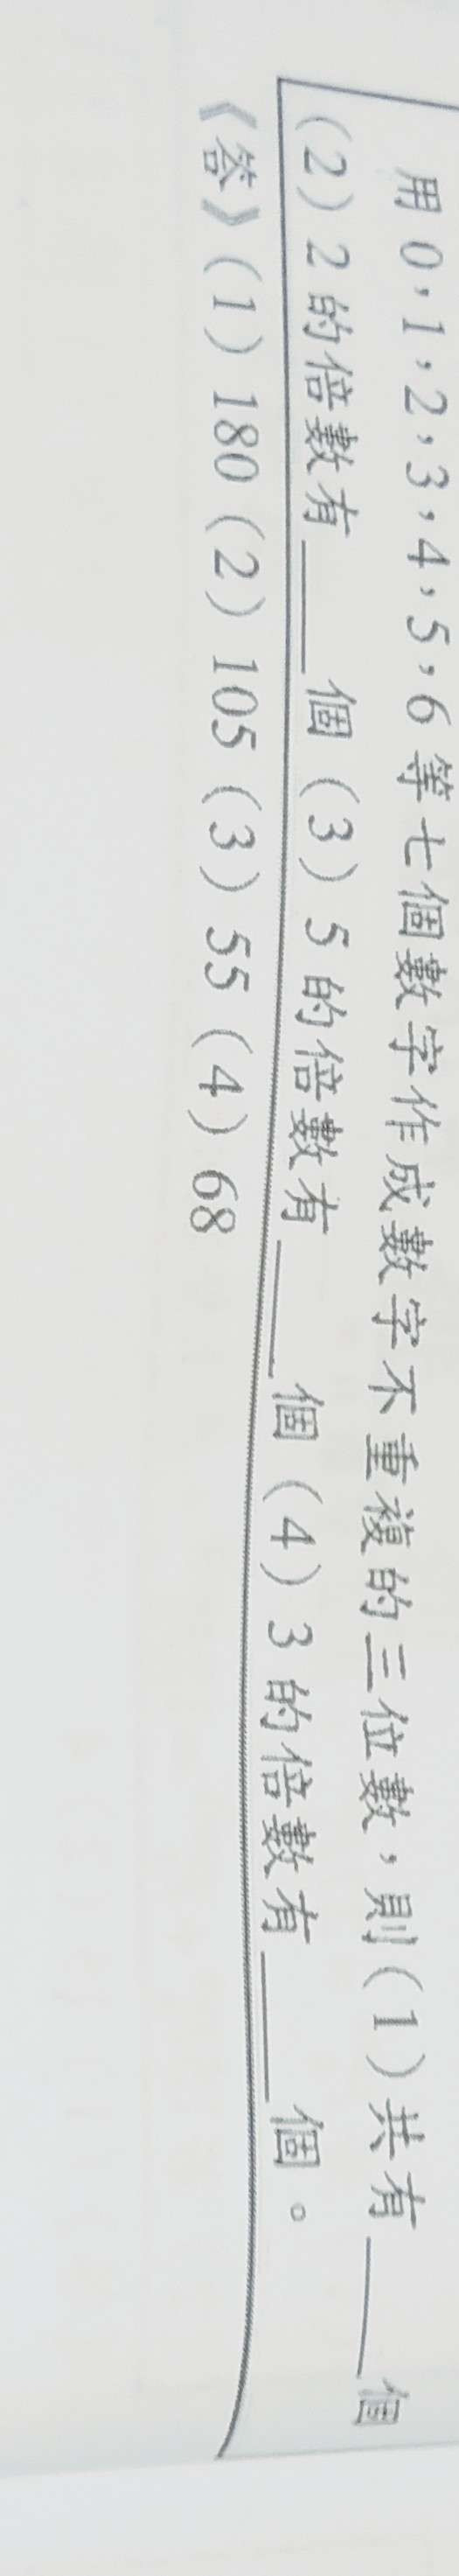 用 0，1，2，3，4，5，6 等七個數字作成數字不重複的三位數，則 (1) 共有____個
(2) 2 的倍數有____個 (3) 5 的倍數有____個 (4) 3 的倍數有____個。
《答》(1) 180 (2) 105 (3) 55 (4) 68